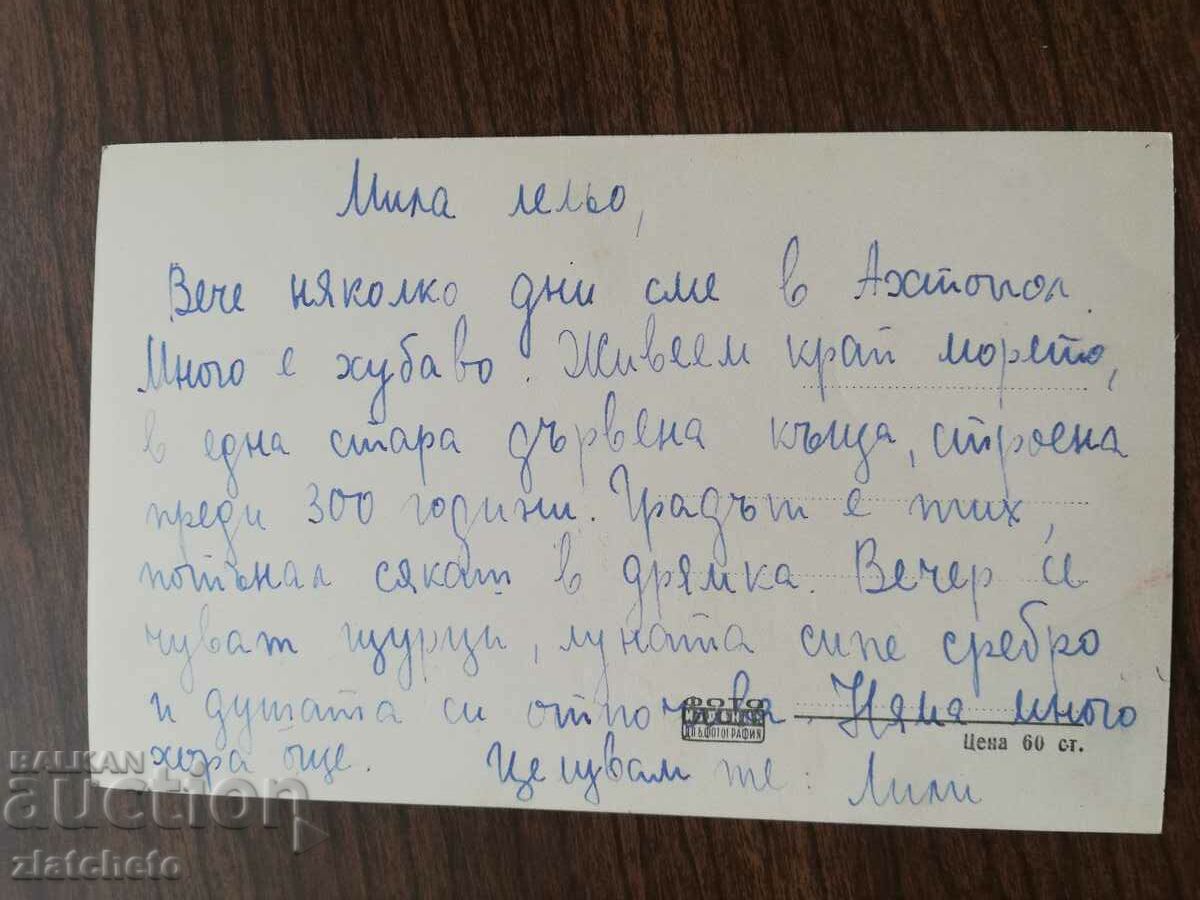 Мила лельо,
Вече няколко дни сме в Ахтопол.
Много е хубаво. Живеем край морето,
в една стара дървена къща, строена
преди 300 години. Градът е тих,
потънал сякаш в дрямка. Вечер се
чуват щурци, луната сипе сребро
и душата си отпочива. Няма много
хора още. Целувам те: Лили
ФОТО
ДП БЪФОТОГРАФИЯ
Цена 60 ст.
BALKAN
auction
zlatcheto